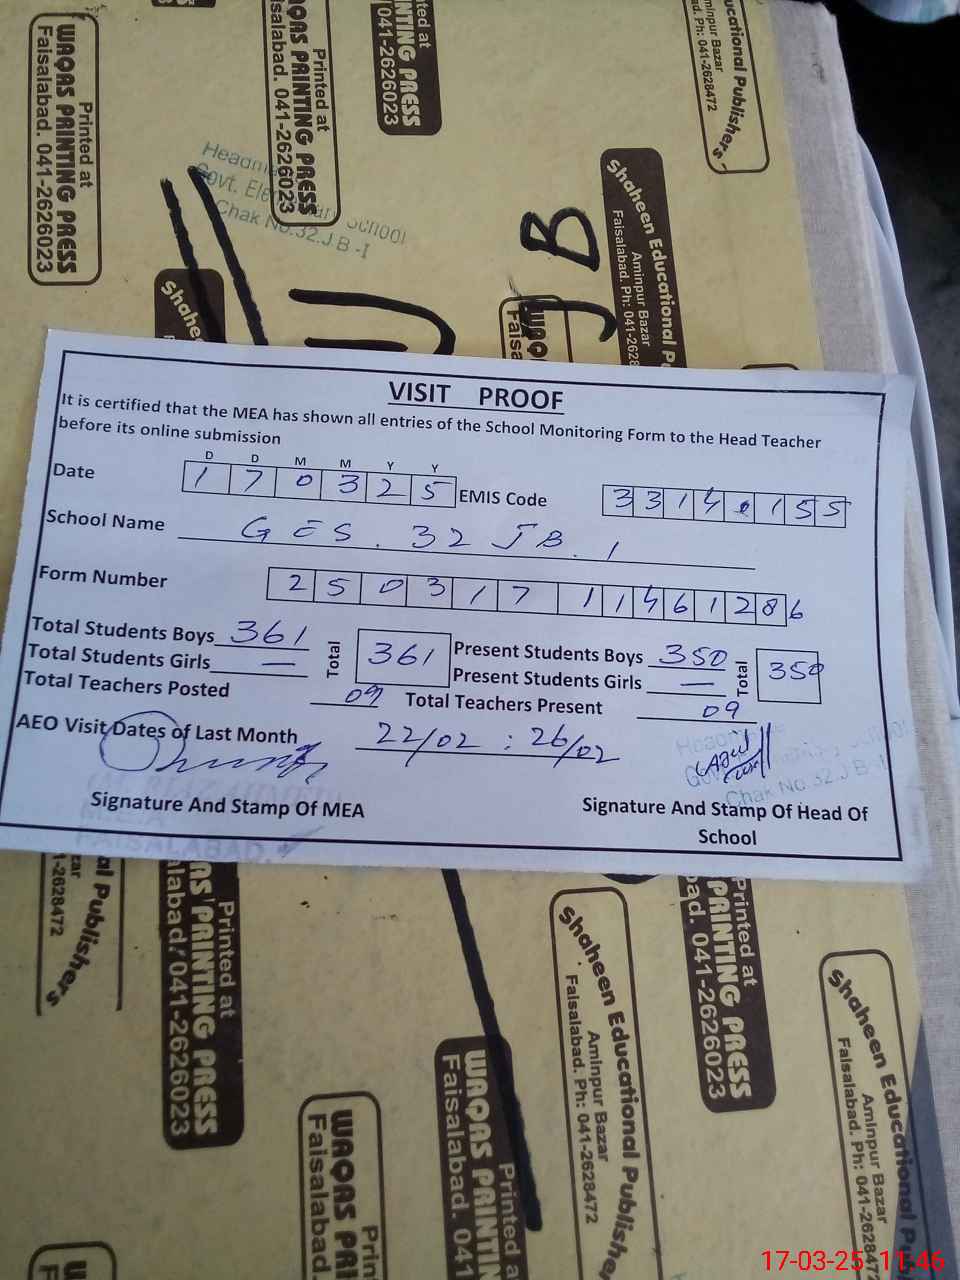 Printed at
WAQAS PRINTING PRESS
Faisalabad. 041-2626023
Printed at
WAQAS PRINTING PRESS
Faisalabad. 041-2626023
PRINTING PRESS
041-2626023
ucational Publishers
Aminpur Bazar
Ph: 041-2628472
Govt. Elementary School
Chak No.32.J.B -I
Shaheen Educational P
Aminpur Bazar
Faisalabad. Ph: 041-2628
J B
VISIT PROOF
It is certified that the MEA has shown all entries of the School Monitoring Form to the Head Teacher
before its online submission
D D M M Y Y
Date 1 7 0 3 2 5 EMIS Code 3 3 1 4 0 1 5 5
School Name G E S . 32 J B . 1
Form Number 2 5 0 3 1 7 1 1 4 6 1 2 8 6
Total Students Boys 361 Total 361 Present Students Boys 350 Total 350
Total Students Girls — Present Students Girls —
Total Teachers Posted 09 Total Teachers Present 09
AEO Visit Dates of Last Month 22/02 : 26/02
Chak No.32.J.B -I
Signature And Stamp Of MEA
Signature And Stamp Of Head Of
School
M.E.A
FAISALABAD.
al Publishers
1-2628472
Printed at
AS PRINTING PRESS
alabad. 041-2626023
Shaheen Educational Publishe
Aminpur Bazar
Faisalabad. Ph: 041-2628472
Printed at
PRINTING PRESS
bad. 041-2626023
Shaheen Educational P
Aminpur Bazar
Faisalabad. Ph: 041-262847
WAQAS PRI
Faisalabad.
Printed at
WAQAS PRINTIN
Faisalabad. 041
17-03-25 11:46